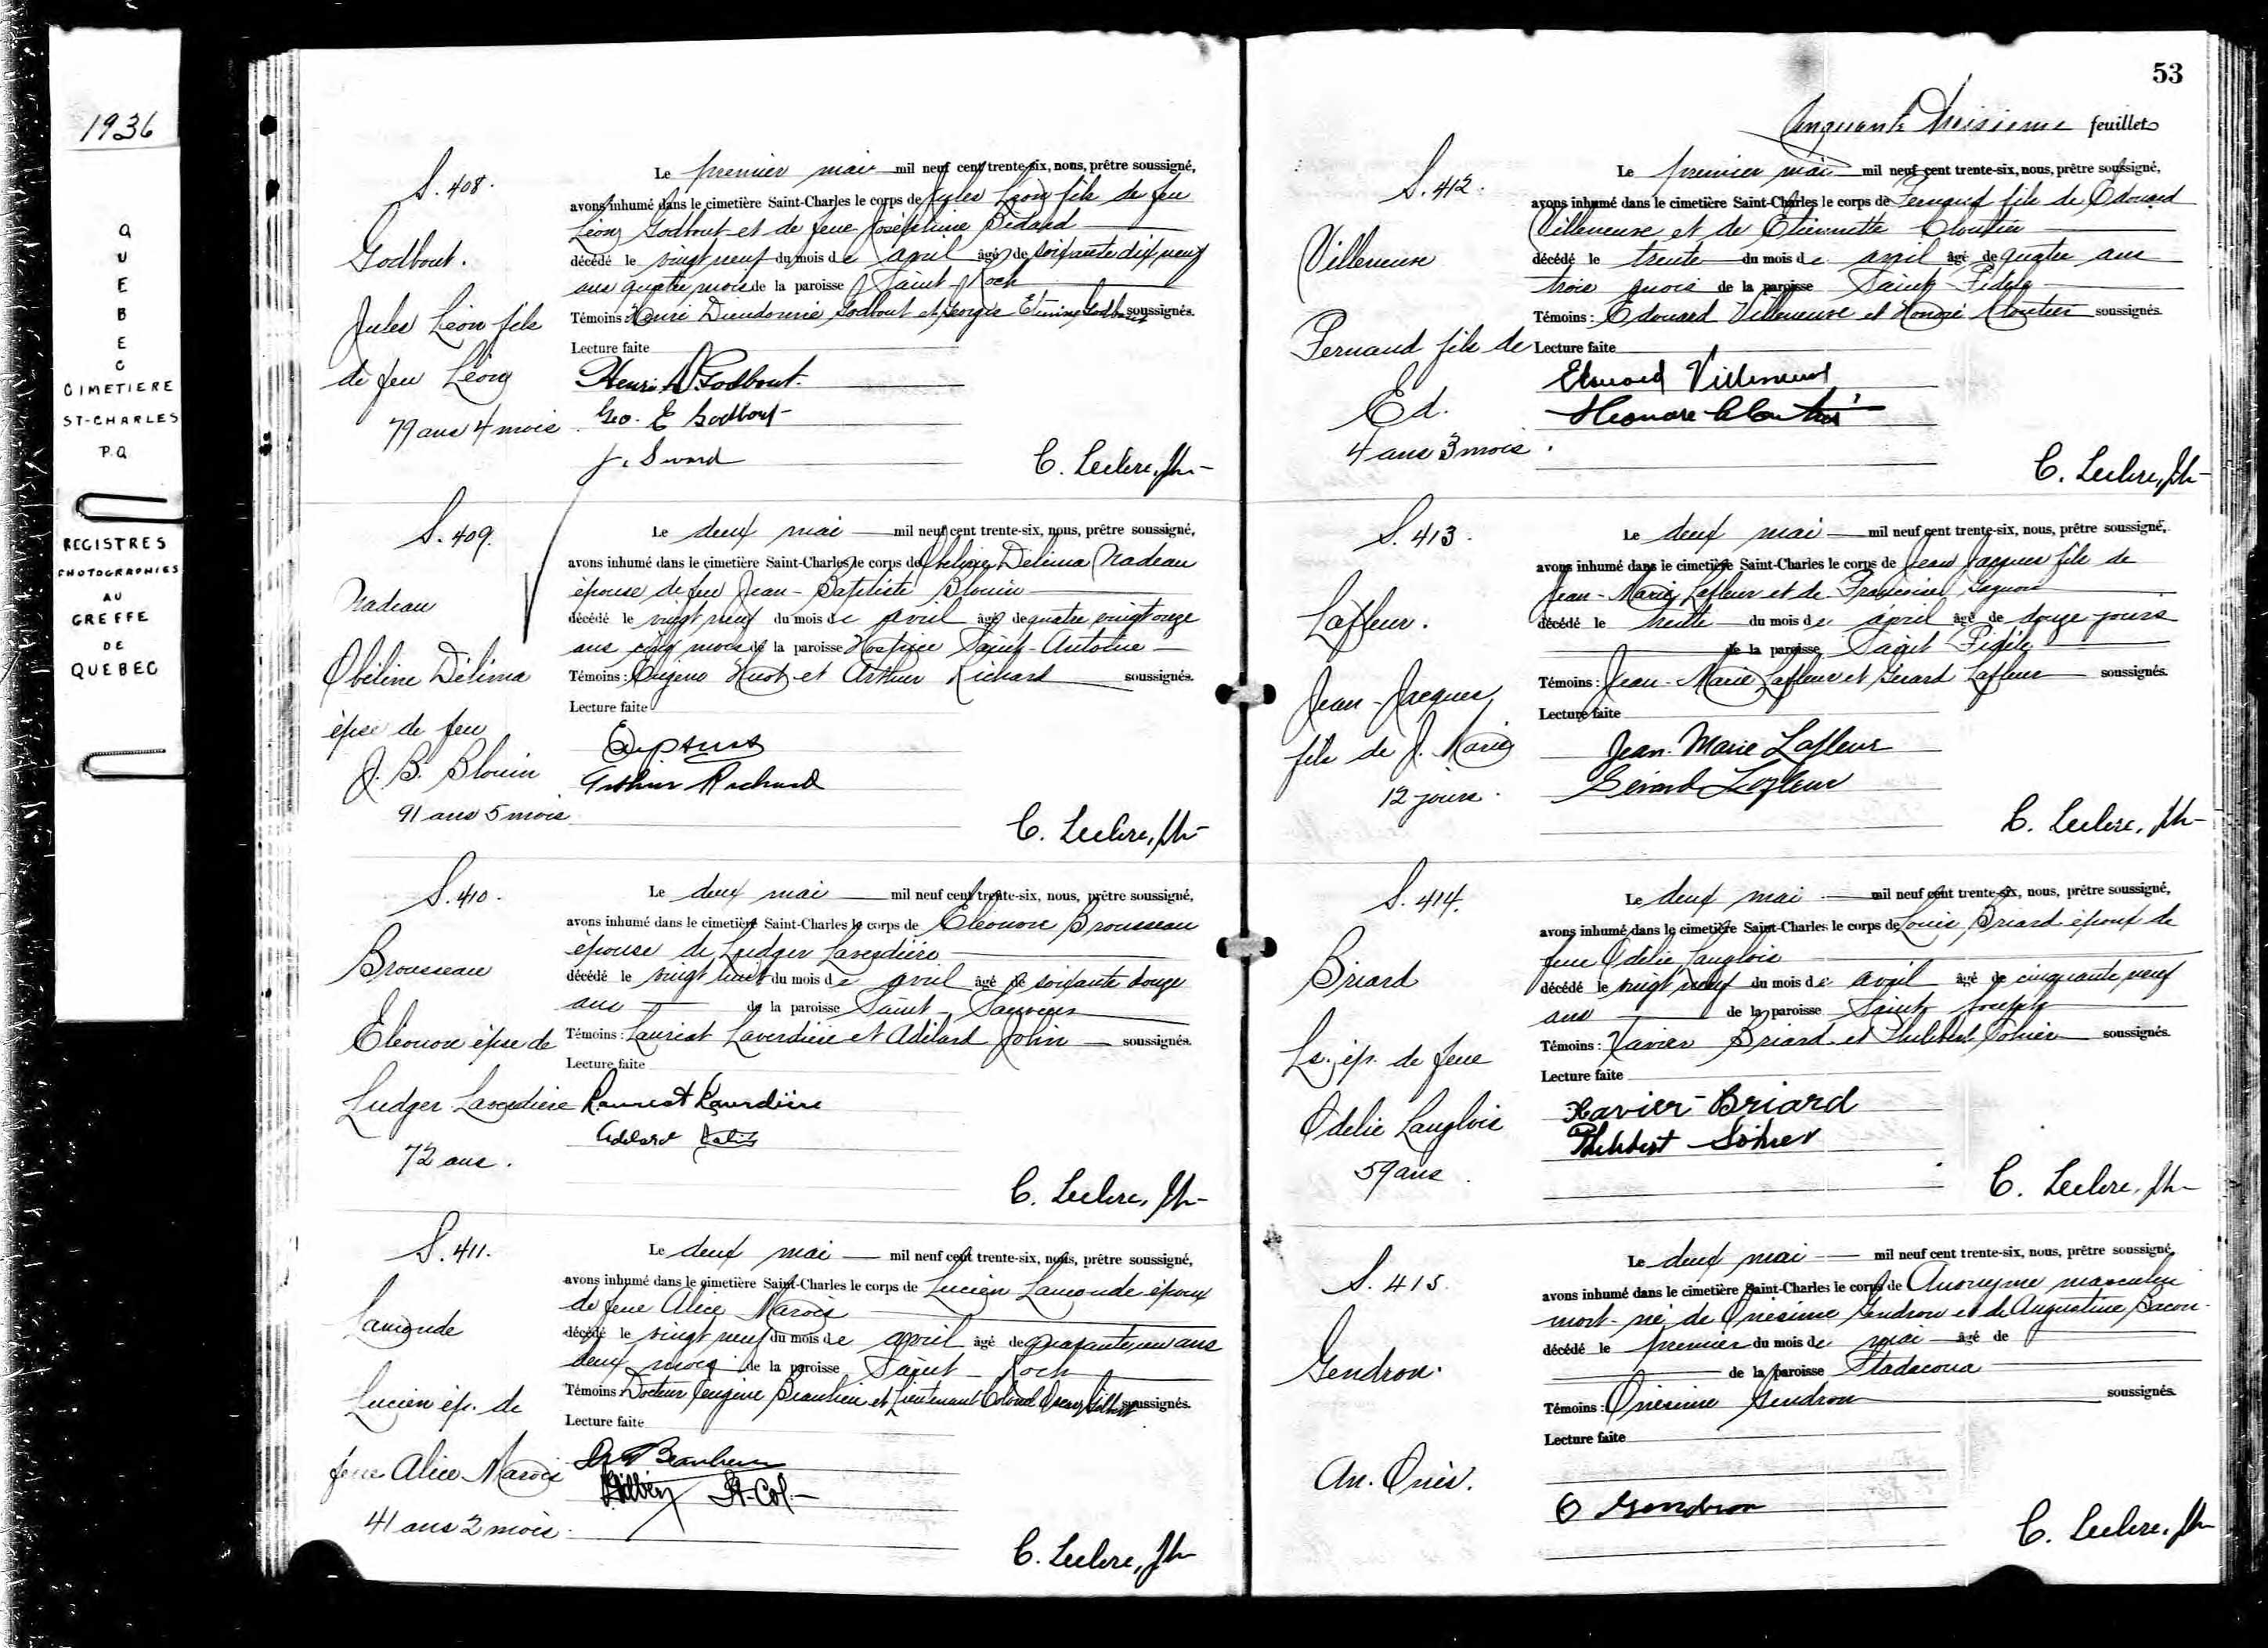 1936
QUEBEC
CIMETIERE
ST-CHARLES
P.Q
REGISTRES
PHOTOGRAPHIES
AU
GREFFE
DE
QUEBEC
S. 408.
Godbout.
Jules Léon fils
de feu Léon
79 ans 4 mois
Le premier mai mil neuf cent trente-six, nous, prêtre soussigné,
avons inhumé dans le cimetière Saint-Charles le corps de Jules Léon fils de feu
Léon Godbout et de feue Joséphine Bédard
décédé le vingt neuf du mois de avril âgé de soixante dix neuf
ans quatre mois de la paroisse Saint-Roch
Témoins: Henri Dieudonné Godbout et Georges Etienne Godbout soussignés.
Lecture faite
Henri D Godbout.
Geo. E Godbout
C. Leclerc, ptr
S. 409.
Nadeau
Obéline Délima
épse de feu
J. B. Blouin
91 ans 5 mois
Le deux mai mil neuf cent trente-six, nous, prêtre soussigné,
avons inhumé dans le cimetière Saint-Charles le corps de Obeline Délima Nadeau
épouse de feu Jean-Baptiste Blouin
décédé le vingt neuf du mois de avril âgé de quatre vingt onze
ans cinq mois de la paroisse Hospice Saint-Antoine
Témoins: Eugène Huot et Arthur Richard soussignés.
Lecture faite
Arthur Richard
C. Leclerc, ptr
S. 410.
Brousseau
Eléonore épse de
Ludger Laverdière
72 ans.
Le deux mai mil neuf cent trente-six, nous, prêtre soussigné,
avons inhumé dans le cimetière Saint-Charles le corps de Eléonore Brousseau
épouse de Ludger Laverdière
décédé le vingt huit du mois de avril âgé de soixante douze
ans de la paroisse Saint-Sauveur
Témoins: Lauréat Laverdière et Adélard Jolin soussignés.
Lecture faite
Laureat Laverdière
Adelard Jolin
C. Leclerc, ptr
S. 411.
Lamonde
Lucien ép. de
feue Alice Marois
41 ans 2 mois.
Le deux mai mil neuf cent trente-six, nous, prêtre soussigné,
avons inhumé dans le cimetière Saint-Charles le corps de Lucien Lamonde époux
de feue Alice Marois
décédé le vingt neuf du mois de avril âgé de quarante un ans
deux mois de la paroisse Saint-Roch
Témoins: Docteur Eugène Beaulieu et Lieutenant Colonel Oscar Gilbert soussignés.
Lecture faite
Beaulieu
Gilbert Lt-Col.
C. Leclerc, ptr
53
Cinquante troisième feuillet
S. 412.
Villeneuve
Fernand fils de
Ed.
4 ans 3 mois.
Le premier mai mil neuf cent trente-six, nous, prêtre soussigné,
avons inhumé dans le cimetière Saint-Charles le corps de Fernand fils de Edouard
Villeneuve et de Etiennette Cloutier
décédé le trente du mois de avril âgé de quatre ans
trois mois de la paroisse Saint-Fidèle
Témoins: Edouard Villeneuve et Honoré Cloutier soussignés.
Lecture faite
Edouard Villeneuve
Honoré Cloutier
C. Leclerc, ptr
S. 413.
Lafleur.
Jean-Jacques
fils de J. Marie
12 jours.
Le deux mai mil neuf cent trente-six, nous, prêtre soussigné,
avons inhumé dans le cimetière Saint-Charles le corps de Jean Jacques fils de
Jean-Marie Lafleur et de Françoise Gagnon
décédé le trente du mois de avril âgé de douze jours
de la paroisse Saint Fidèle
Témoins: Jean-Marie Lafleur et Gérard Lafleur soussignés.
Lecture faite
Jean-Marie Lafleur
Gérard Lafleur
C. Leclerc, ptr
S. 414.
Briard
Ls. ép. de feue
Odélie Langlois
59 ans.
Le deux mai mil neuf cent trente-six, nous, prêtre soussigné,
avons inhumé dans le cimetière Saint-Charles le corps de Louis Briard époux de
feue Odélie Langlois
décédé le vingt neuf du mois de avril âgé de cinquante neuf
ans de la paroisse Saint Joseph
Témoins: Xavier Briard et Philibert Sohier soussignés.
Lecture faite
Xavier Briard
Philibert Sohier
C. Leclerc, ptr
S. 415.
Gendron.
An. Onés.
Le deux mai mil neuf cent trente-six, nous, prêtre soussigné,
avons inhumé dans le cimetière Saint-Charles le corps de Anonyme masculin
mort-né de Onésime Gendron et de Augustine Bacon.
décédé le premier du mois de mai âgé de
de la paroisse Stadacona
Témoins: Onésime Gendron soussignés.
Lecture faite
O Gendron
C. Leclerc, ptr